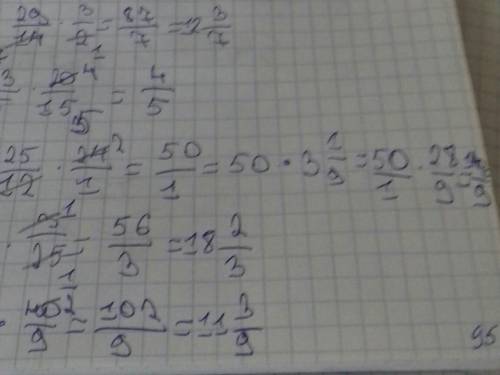 29/14 · 3/2 = 87/7 = 12 3/7
3/ · 20/15 = 4/5
25/12 · 24/1 = 50/1 = 50 · 3 1/9 = 50/1 · 28/9 =
/25 = 56/3 = 18 2/3
/9 = 102/9 = 11 3/9
95